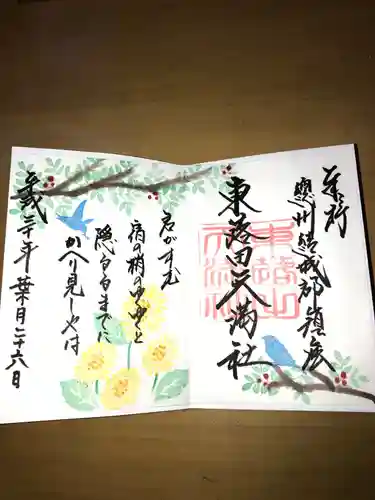 奉拝
總州結城郡鎮座
東蕗田天満社
君がすむ
宿の梢のゆくゆくと
隠るるまでに
かへり見しやは
令和二年葉月二十六日